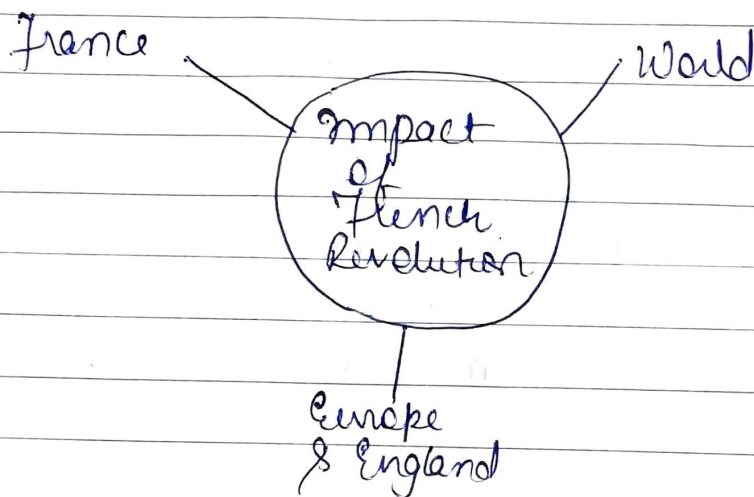 France
World
Impact
of
French
Revolution
Europe
& England